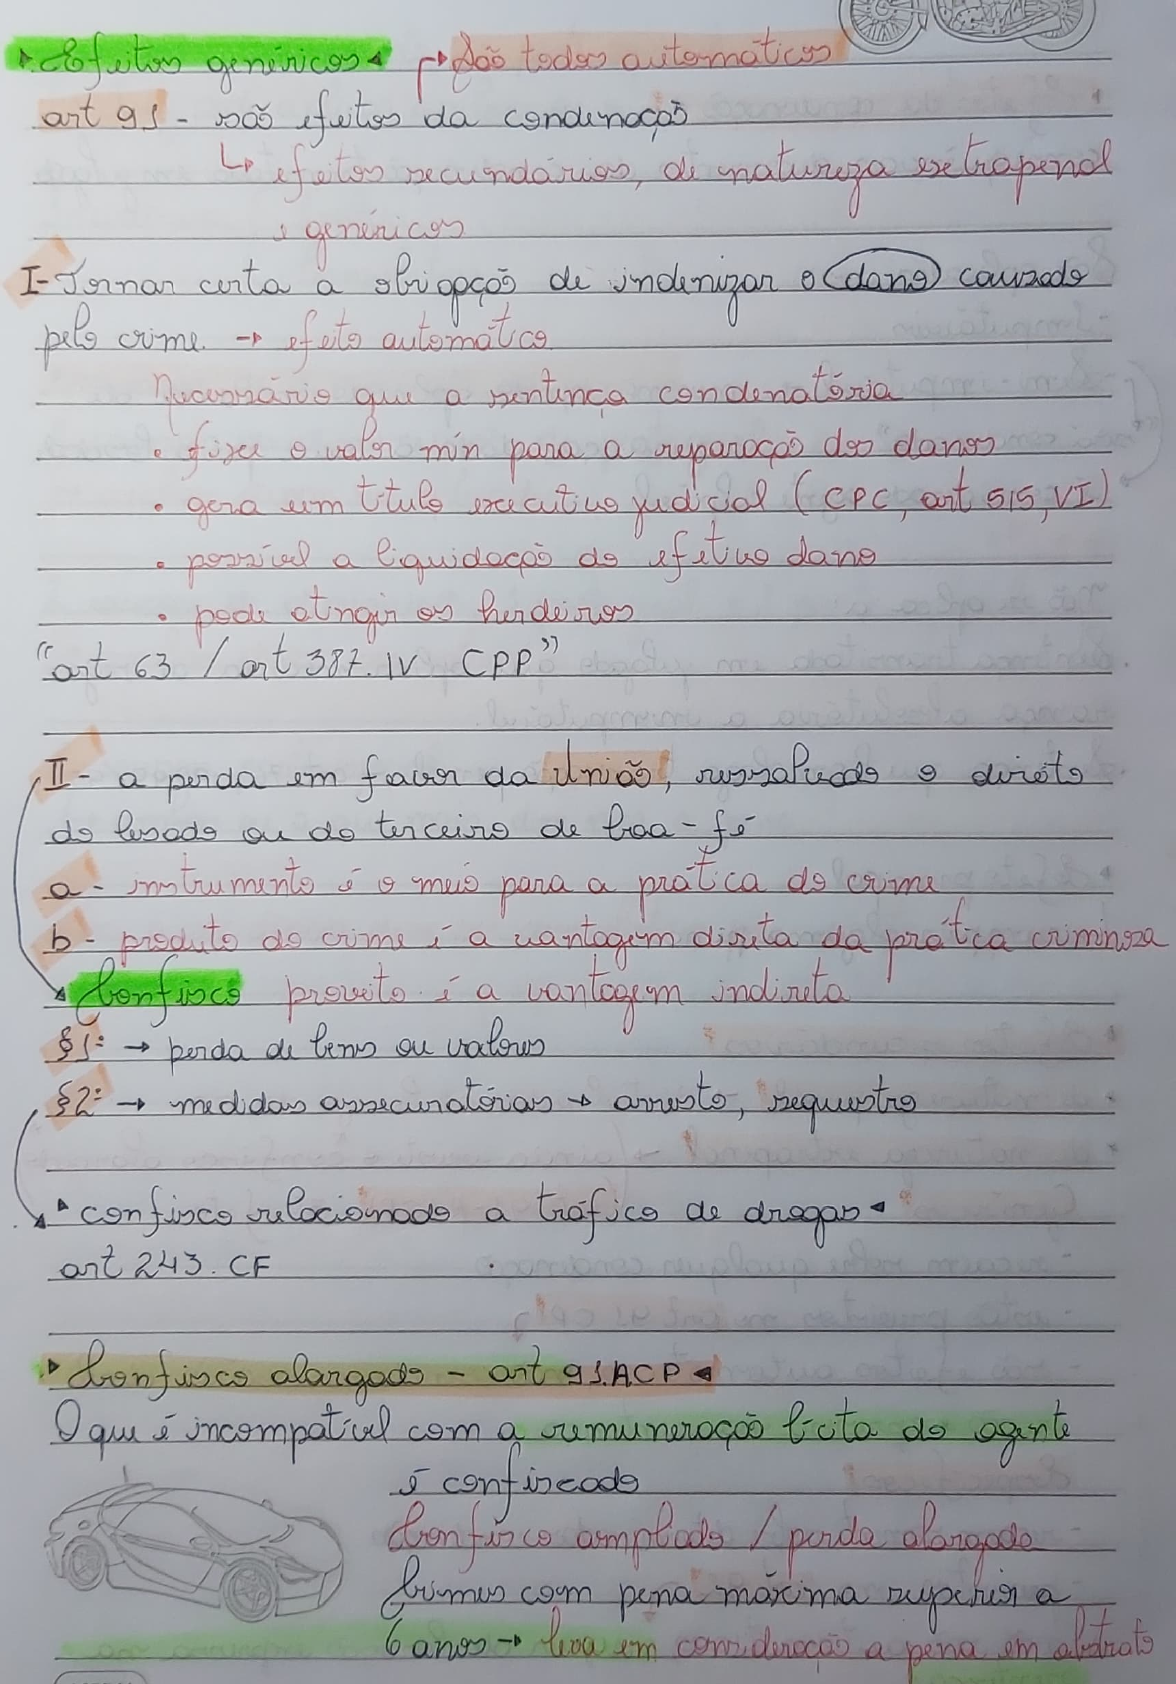 Efeitos genéricos São todos automáticos
art 91 - são efeitos da condenação
efeitos secundários, de natureza extrapenal
e genéricos
I- Tornar certa a obrigação de indenizar o dano causado
pelo crime. → efeito automático
Necessário que a sentença condenatória
• fixe o valor mín para a reparação dos danos
• gera um título executivo judicial (CPC, art 515, VI)
• possível a liquidação do efetivo dano
• pode atingir os herdeiros
"art 63 / art 387. IV CPP"
II- a perda em favor da União, ressalvado o direito
do lesado ou do terceiro de boa-fé
a- instrumento é o meio para a prática do crime
b- produto do crime é a vantagem direta da prática criminosa
Confisco proveito é a vantagem indireta
§1º → perda de bens ou valores
§2º → medidas assecuratórias → arresto, sequestro
confisco relacionado a tráfico de drogas
art 243. CF
Confisco alargado - art 91.A CP
O que é incompatível com a remuneração lícita do agente
é confiscado
Confisco ampliado / perda alargada
Crimes com pena máxima superior a
6 anos → leva em consideração a pena em abstrato